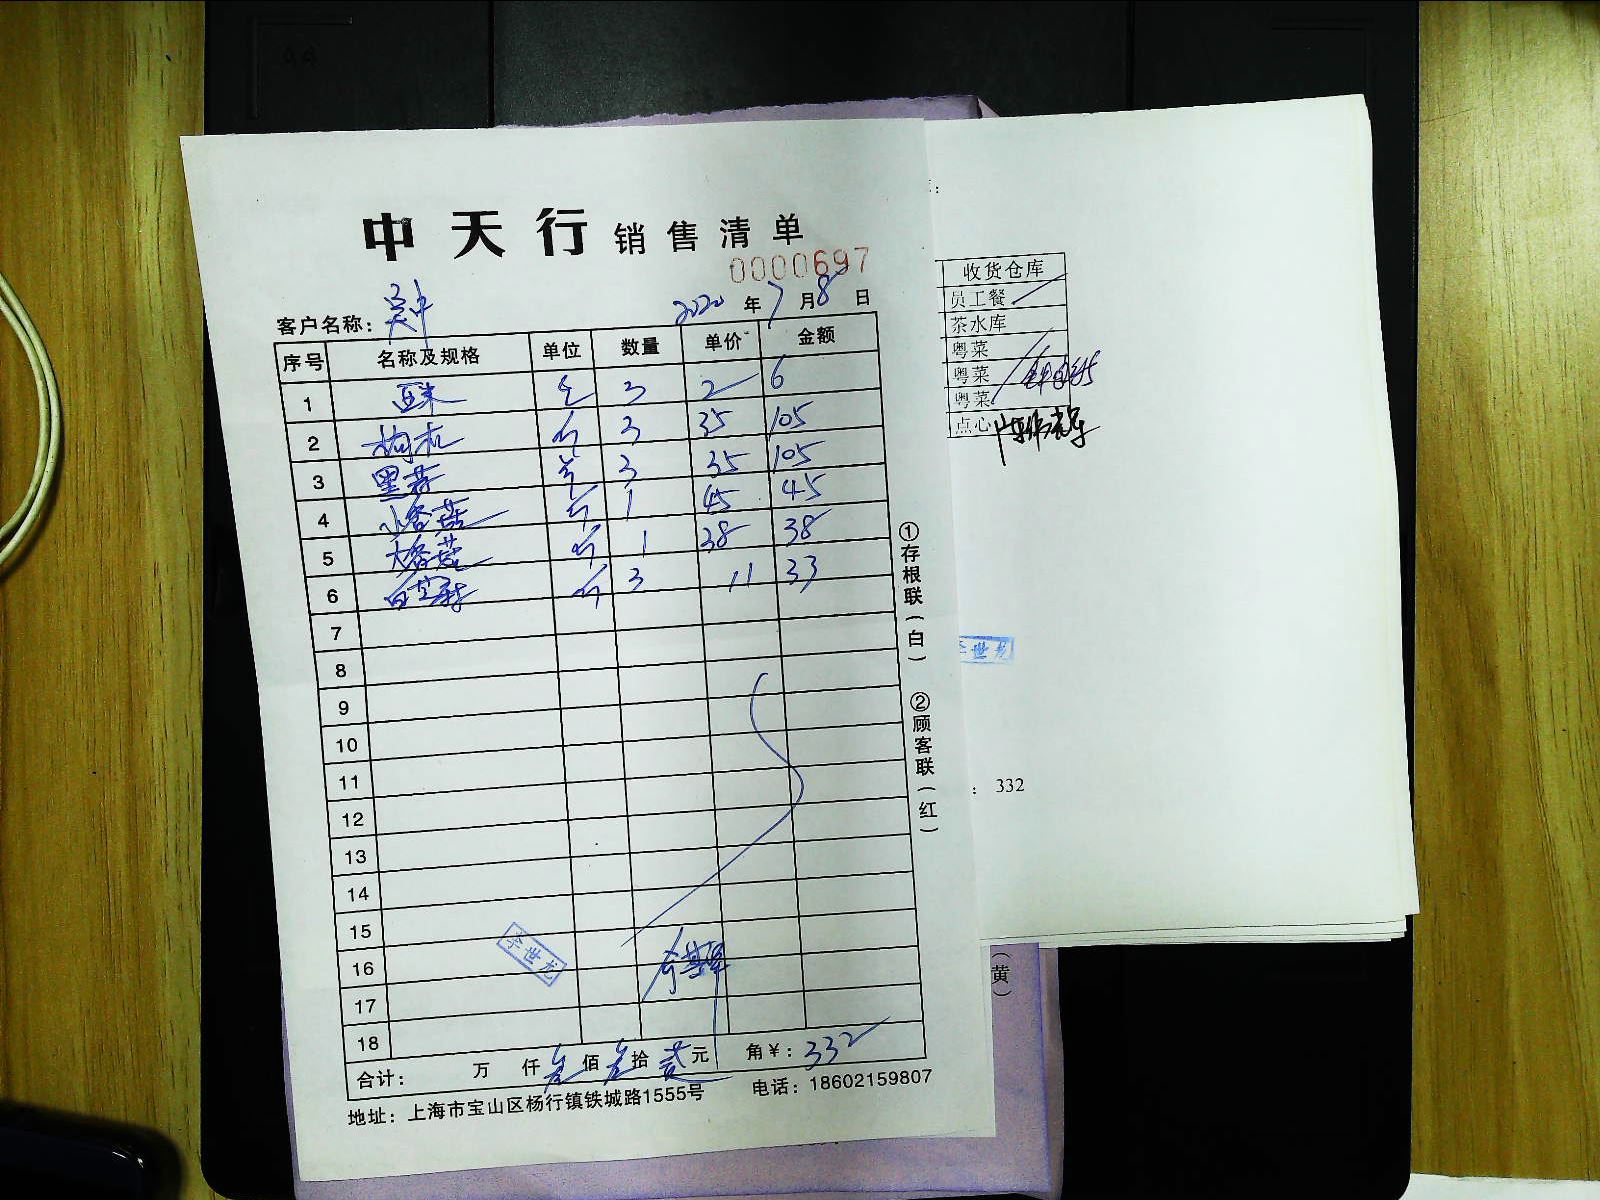 中天行 销售清单
0000697
客户名称: 吴中 2020年7月8日
序号 名称及规格 单位 数量 单价 金额
1 3 2 6
2 枸杞 斤 3 35 105
3 3 35 105
4 小香菇 斤 1 45 45
5 大香菇 斤 1 38 38
6 白芝麻 斤 3 11 33
7
8
9
10
11
12
13
14
15
16
17
18
李世龙
合计: 万 仟 叁佰 叁拾 贰元 角¥: 332
地址: 上海市宝山区杨行镇铁城路1555号 电话: 18602159807
①存根联(白) ②顾客联(红)
收货仓库
员工餐
茶水库
粤菜
粤菜
粤菜
点心
李世龙
: 332
(黄)